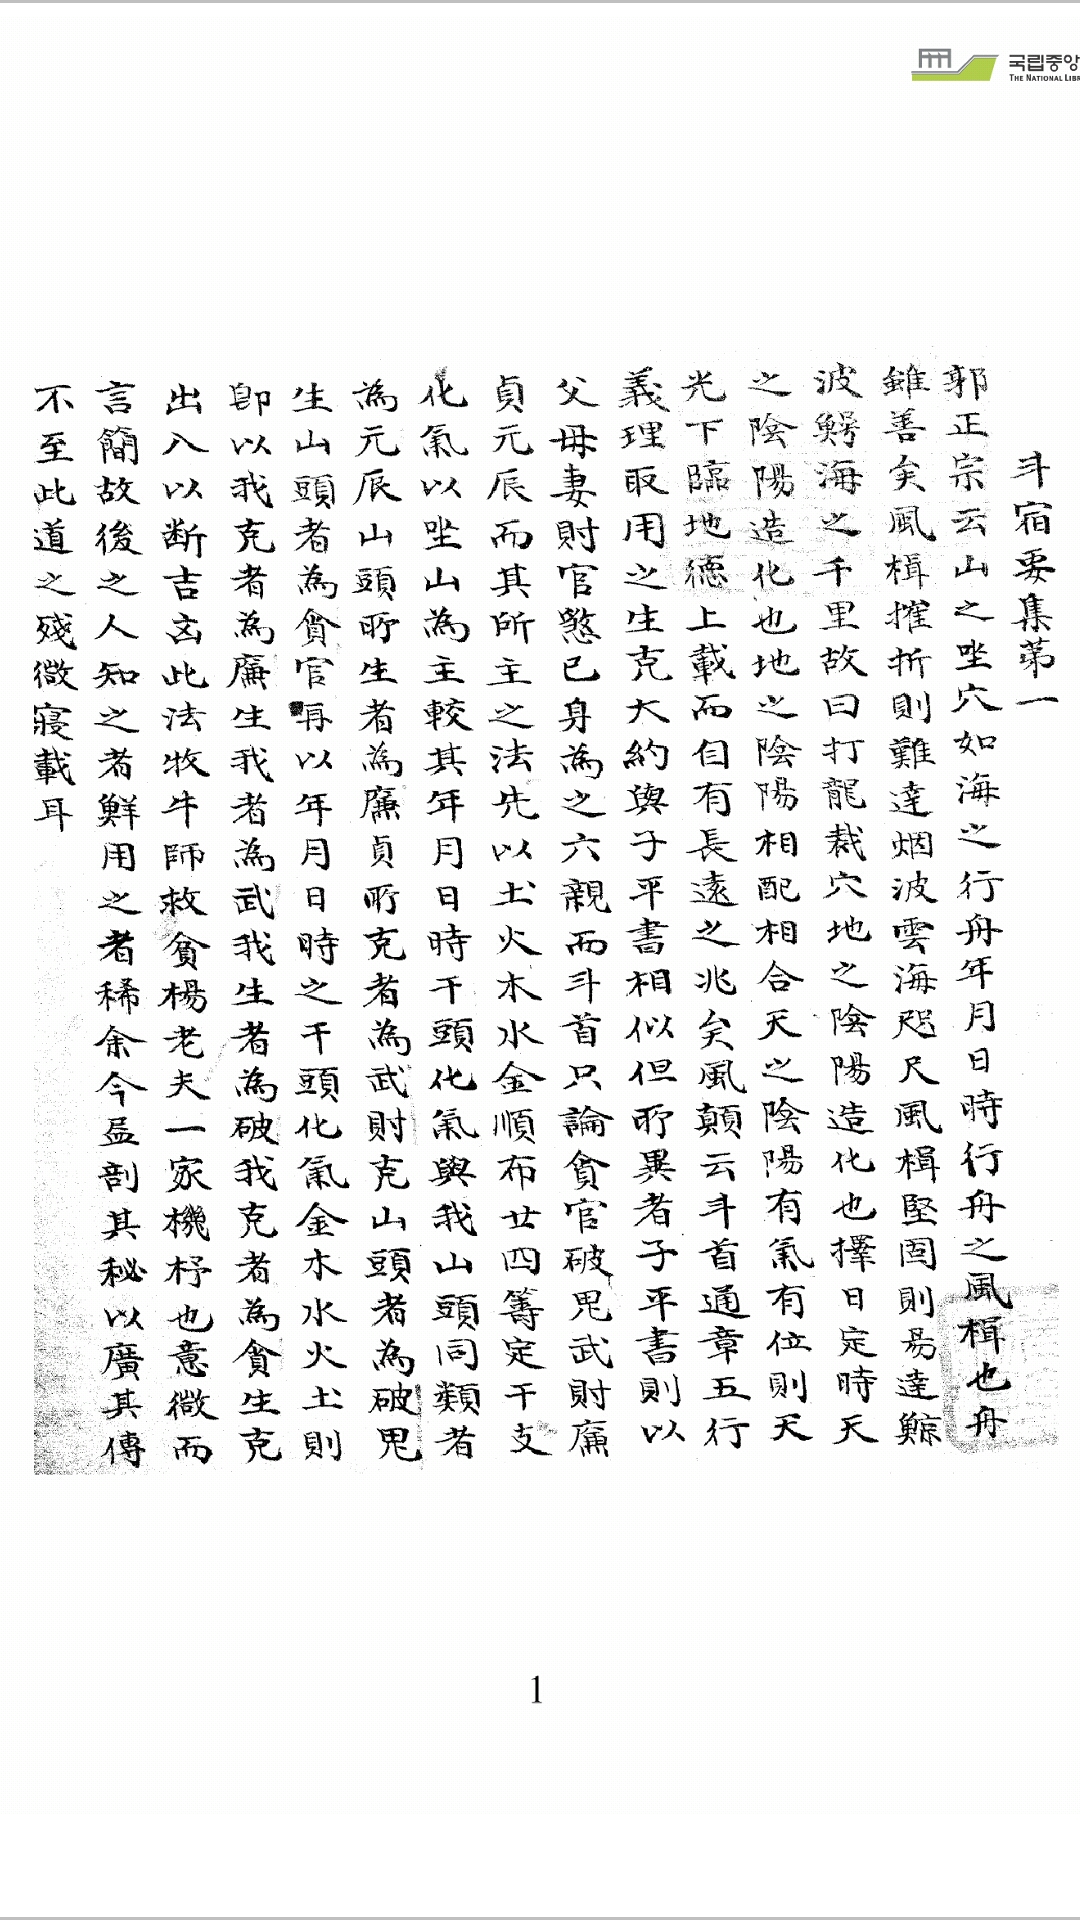 국립중앙
THE NATIONAL LIBR
斗宿要集第一
郭正宗云山之坐穴如海之行舟年月日時行舟之風楫也舟
雖善矣風楫摧折則難達烟波雲海咫尺風楫堅固則易達鯨
波鰐海之千里故曰打龍裁穴地之陰陽造化也擇日定時天
之陰陽造化也地之陰陽相配相合天之陰陽有氣有位則天
光下臨地德上載而自有長遠之兆矣風顛云斗首通章五行
義理取用之生克大約與子平書相似但所異者子平書則以
父母妻財官慇已身為之六親而斗首只論貪官破鬼武財廉
貞元辰而其所主之法先以土火木水金順布廿四籌定干支
化氣以坐山為主較其年月日時干頭化氣與我山頭同類者
為元辰山頭所生者為廉貞所克者為武財克山頭者為破鬼
生山頭者為貪官再以年月日時之干頭化氣金木水火土則
即以我克者為廉生我者為武我生者為破我克者為貪生克
出入以断吉凶此法牧牛師救貧楊老夫一家機杼也意微而
言簡故後之人知之者鮮用之者稀余今益剖其秘以廣其傳
不至此道之殘微寢載耳
1